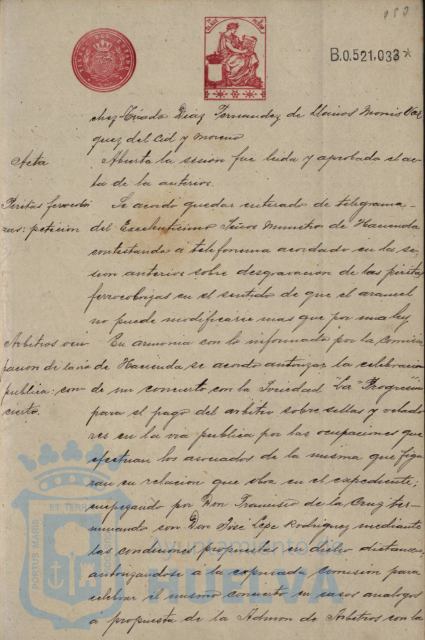 B.0.521,033*
chez Tirado Diaz Fernandez de Llanos Monis Vaz
quez del Cid y Moreno
Acta Abierta la sesion fue leida y aprobada el ac
ta de la anterior.
Piritas ferrocobri
zas: peticion
Se acordó quedar enterado de telegrama
del Excelentisimo Señor Ministro de Hacienda
contestando á telefonema acordado en la se
sion anterior sobre desgravacion de las piritas
ferrocobrizas en el sentido de que el arancel
no puede modificarse mas que por una ley.
Arbitrios ocu
pacion de la via
publica: con
cierto.
En armonia con lo informado por la Comision
de Hacienda se acordó autorizar la celebracion
de un concierto con la Sociedad "La Progresiva"
para el pago del arbitrio sobre sillas y velado
res en la via publica por las ocupaciones que
efectuan los asociados de la misma que figu
ran en relacion que obra en el expediente;
empezando por Don Francisco de la Cruz ter
minando con Don José Lepe Rodriguez mediante
las condiciones propuestas en dicho dictamen,
autorizandose á la expresada Comisión para
celebrar el mismo concierto en casos analogos
a propuesta de la Admon de Arbitrios con la
PORTUS MARIS
ET TERRAE
Ayuntamiento de
HUELVA